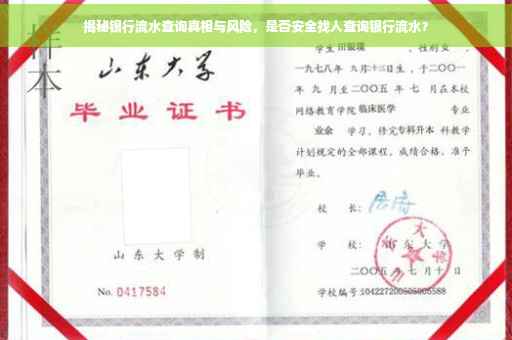 揭秘银行流水查询真相与风险，是否安全找人查询银行流水？
样本
山东大学
毕业证书
山东大学制
No. 0417584
学生 田银瑞 ，性别女 ，
一九七八年 九月十二日生，于二〇〇一
年 九 月至二〇〇五 年 七 月在本校
网络教育学院 临床医学 专业
业余 学习，修完专科升本 科教学
计划规定的全部课程，成绩合格，准予
毕业。
校 长：
学 校：山东大学
二〇〇五 年 七 月 十 日
学校编号：104227200505005588